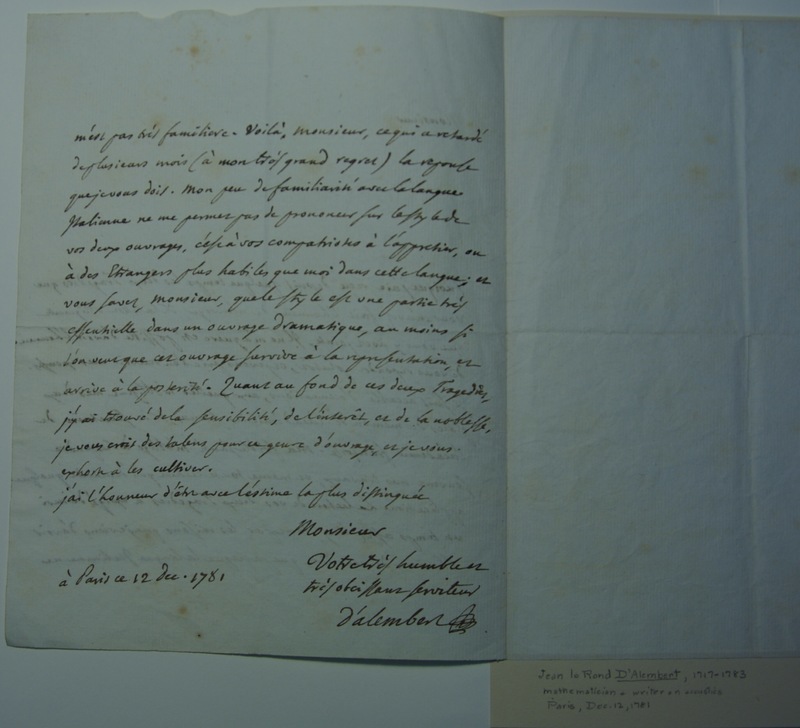 m'est pas très familiere. Voilà, Monsieur, ce qui a retardé
de plusieurs mois (à mon très grand regret) la reponse
que je vous dois. Mon peu de familiarité avec la langue
Italienne ne me permet pas de prononcer sur le style de
vos deux ouvrages, c'est à vos compatriotes à l'apprecier, ou
à des Etrangers plus habiles que moi dans cette langue; et
vous savez, Monsieur, que le style est une partie très
essentielle dans un ouvrage dramatique, au moins si
l'on veut que cet ouvrage survive à la representation, et
arrive à la posterité. Quant au fond de ces deux Tragedies,
j'y ai trouvé de la sensibilité, de l'interêt, et de la noblesse,
je vous crois des talens pour ce genre d'ouvrage, et je vous
exhorte à les cultiver.
j'ai l'honneur d'être avec l'estime la plus distinguée
Monsieur
Votre très humble et
très obeissant serviteur
D'alembert
à Paris ce 12 dec. 1781
Jean le Rond D'Alembert, 1717-1783
mathematician + writer on
Paris, Dec. 12, 1781